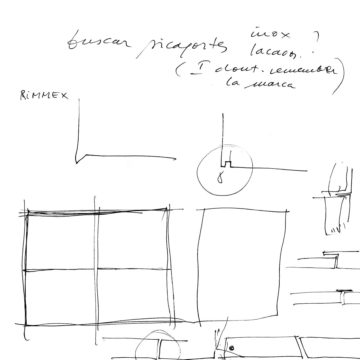 buscar picaportes inox ?
lacados.
(I dont remember
la marca)
RiMMEX
8